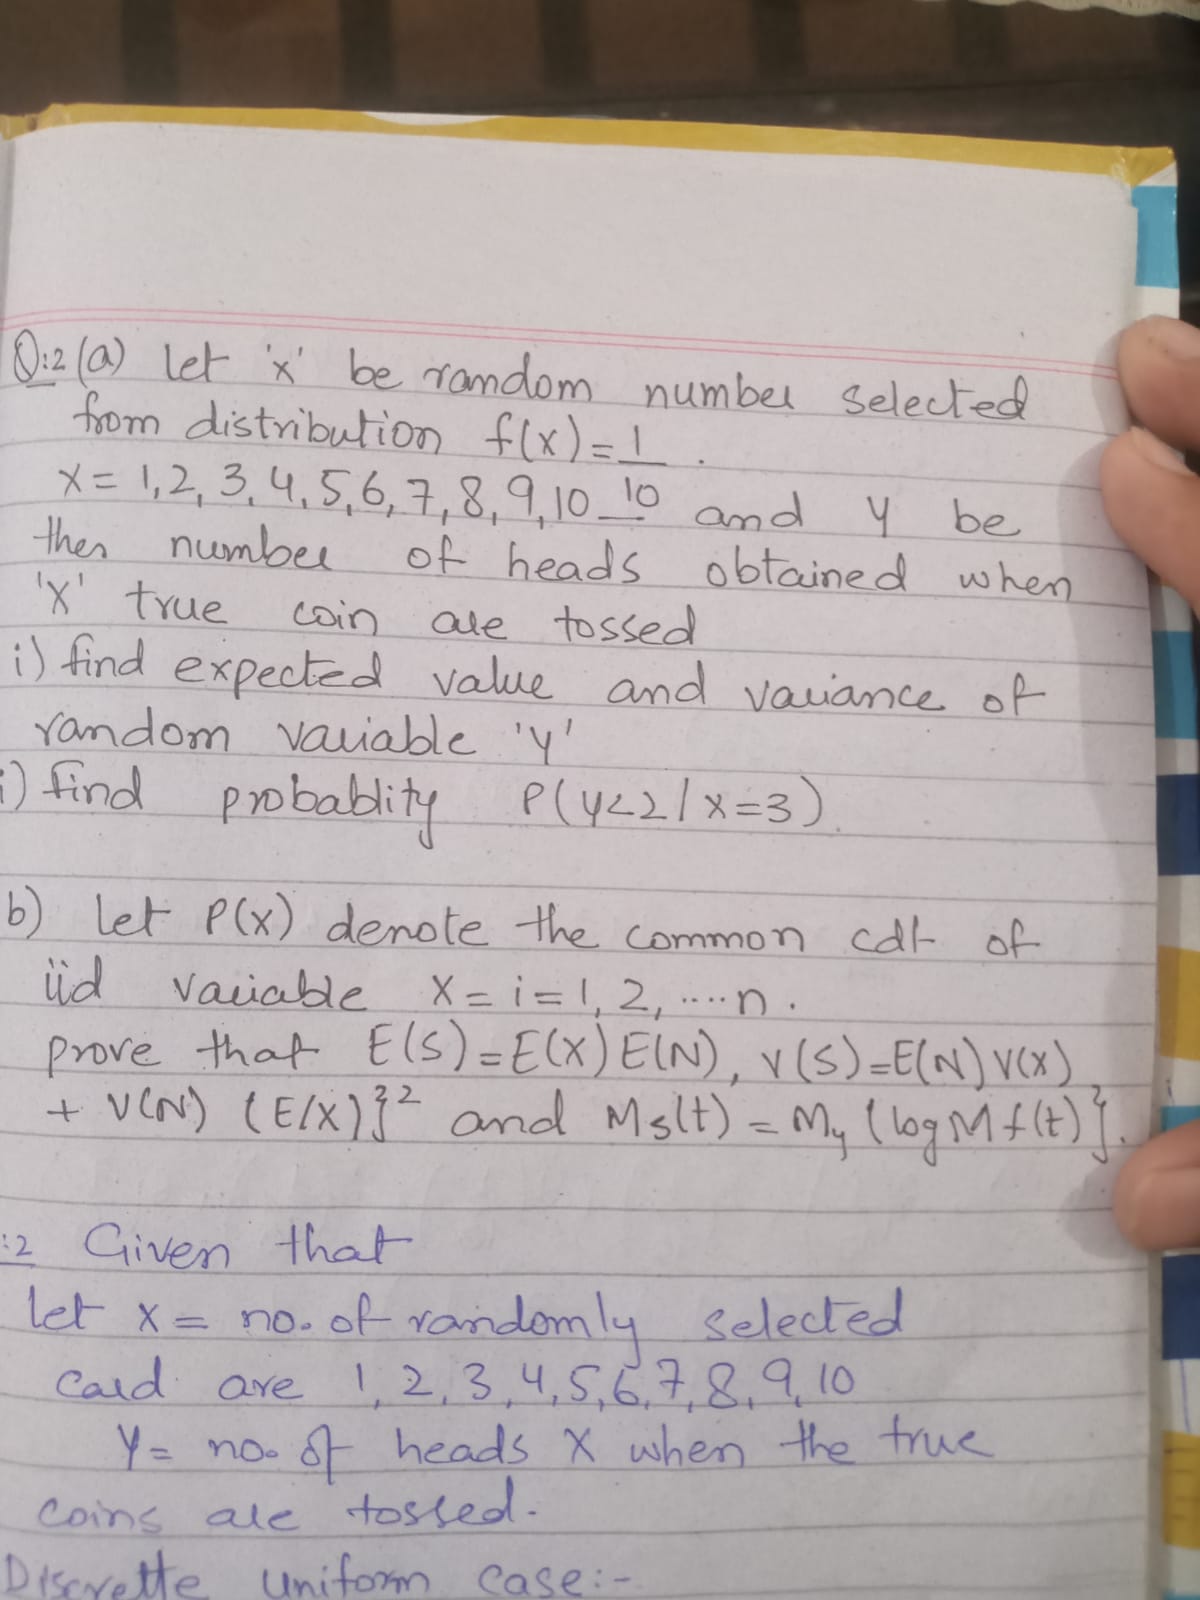 Q:2 (a) let 'x' be random number selected
from distribution f(x) = 1 .
x = 1,2,3,4,5,6,7,8,9,10 10 and y be
then number of heads obtained when
'x' true coin are tossed
i) find expected value and variance of
random variable 'y'
i) find probablity P(y<2/x=3).
b) let P(x) denote the common cdt of
iid variable x = i = 1, 2, ....n .
prove that E(S) = E(X) E(N), V(S) = E(N) V(X)
+ V(N) (E/X)}² and Ms(t) = My (log M f(t)}.
:2 Given that
let x = no. of randomly selected
card are 1, 2, 3, 4, 5, 6, 7, 8, 9, 10
Y = no. of heads X when the true
coins are tossed.
Discrette uniform case:-